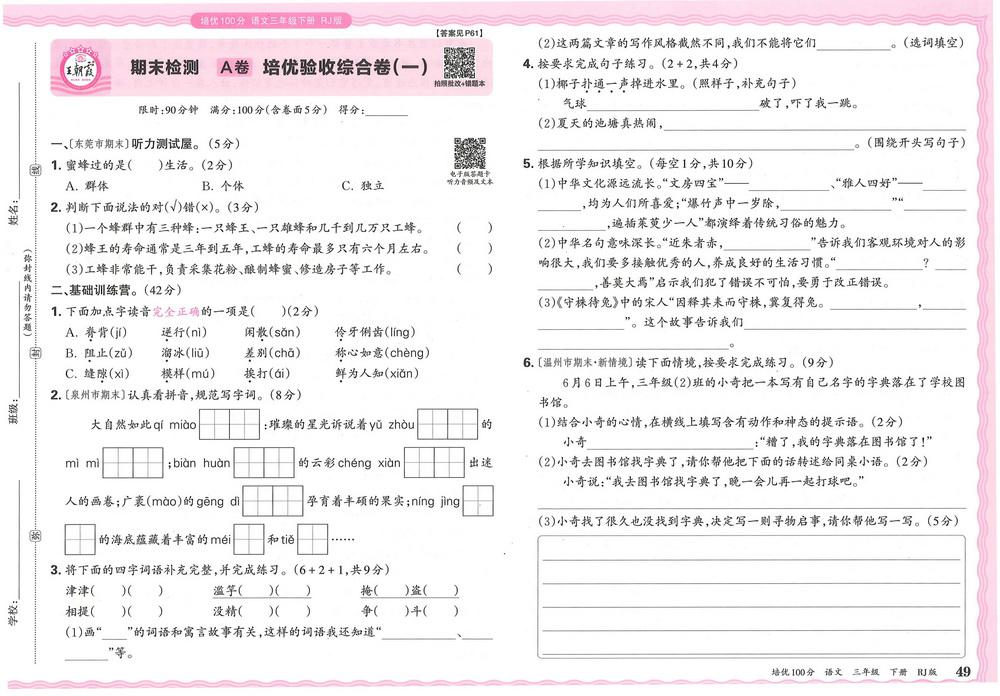 培优100分 语文三年级下册 RJ版
【答案见P61】
王朝霞
期末检测 A卷 培优验收综合卷(一)
拍照批改+错题本
限时:90分钟 满分:100分(含卷面5分) 得分:________
一、〔东莞市期末〕听力测试屋。(5分)
1. 蜜蜂过的是( )生活。(2分)
A. 群体 B. 个体 C. 独立
电子版答题卡
听力音频及文本
2. 判断下面说法的对(√)错(×)。(3分)
(1)一个蜂群中有三种蜂:一只蜂王、一只雄蜂和几千到几万只工蜂。 ( )
(2)蜂王的寿命通常是三年到五年,工蜂的寿命最多只有六个月左右。 ( )
(3)工蜂非常能干,负责采集花粉、酿制蜂蜜、修造房子等工作。 ( )
二、基础训练营。(42分)
1. 下面加点字读音完全正确的一项是( )(2分)
A. 脊背(jí) 逆行(nì) 闲散(sǎn) 伶牙俐齿(líng)
B. 阻止(zǔ) 溜冰(liū) 差别(chā) 称心如意(chèng)
C. 缝隙(xì) 模样(mú) 挨打(ái) 鲜为人知(xiǎn)
2. 〔泉州市期末〕认真看拼音,规范写字词。(8分)
大自然如此qí miào ;璀璨的星光诉说着yǔ zhòu 的
mì mì ;biàn huàn 的云彩chéng xiàn 出迷
人的画卷;广袤(mào)的gēng dì 孕育着丰硕的果实;níng jìng
的海底蕴藏着丰富的méi 和tiě ……
3. 将下面的四字词语补充完整,并完成练习。(6+2+1,共9分)
津津( )( ) 滥竽( )( ) 掩( )盗( )
相提( )( ) 没精( )( ) 争( )斗( )
(1)画“____”的词语和寓言故事有关,这样的词语我还知道“____________、
________”等。
(2)这两篇文章的写作风格截然不同,我们不能将它们____________。(选词填空)
4. 按要求完成句子练习。(2+2,共4分)
(1)椰子扑通一声掉进水里。(照样子,补充句子)
气球____________________________破了,吓了我一跳。
(2)夏天的池塘真热闹,________________________________________________
________________________________________________。(围绕开头写句子)
5. 根据所学知识填空。(每空1分,共10分)
(1)中华文化源远流长。“文房四宝”——____________、“雅人四好”——______
______,均为人们所喜爱;“爆竹声中一岁除,________________”“__________
__________,遍插茱萸少一人”都演绎着传统习俗的魅力。
(2)中华名句意味深长。“近朱者赤,____________”告诉我们客观环境对人的影
响很大,我们要多接触优秀的人,养成良好的生活习惯。“____________? ______
____________,善莫大焉”启示我们犯了错误不可怕,要勇于改正错误。
(3)《守株待兔》中的宋人“因释其耒而守株,冀复得兔。____________,________
____________”。这个故事告诉我们____________________________________
________________________________。
6. 〔温州市期末·新情境〕读下面情境,按要求完成练习。(9分)
6月6日上午,三年级(2)班的小奇把一本写有自己名字的字典落在了学校图
书馆。
(1)结合小奇的心情,在横线上填写含有动作和神态的提示语。(2分)
小奇____________________________:“糟了,我的字典落在图书馆了!”
(2)小奇去图书馆找字典了,请你帮他把下面的话转述给同桌小语。(2分)
小奇说:“我去图书馆找字典了,晚一会儿再一起打球吧。”
(3)小奇找了很久也没找到字典,决定写一则寻物启事,请你帮他写一写。(5分)
培优100分 语文 三年级 下册 RJ版 49
姓名:
班级:
学校:
(弥封线内请勿答题)
线
封
弥